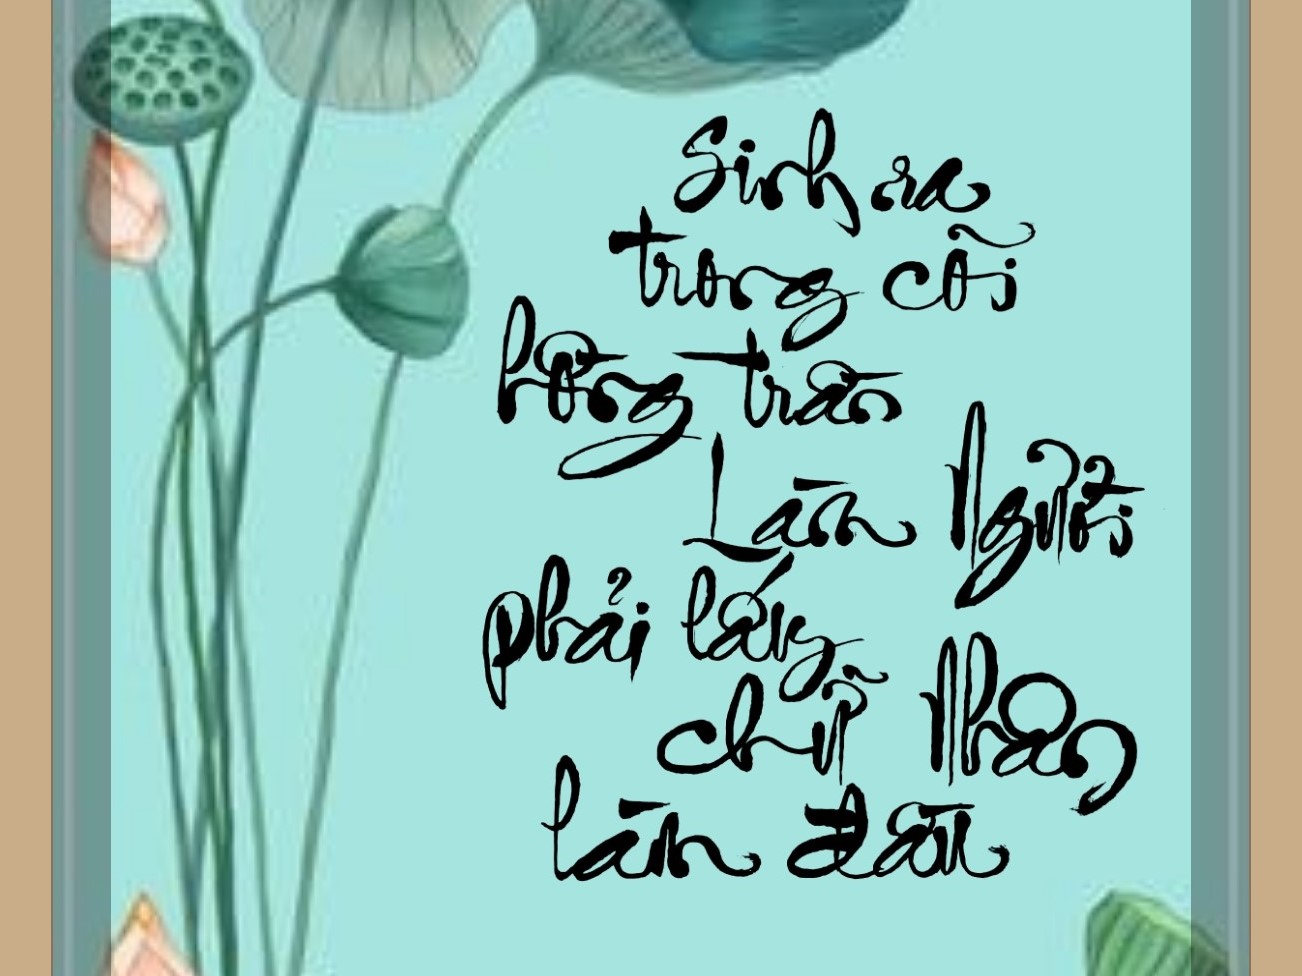 Sinh ra
trong cõi
hồng trần
Làm Người
phải lấy
chữ Nhân
làm đầu